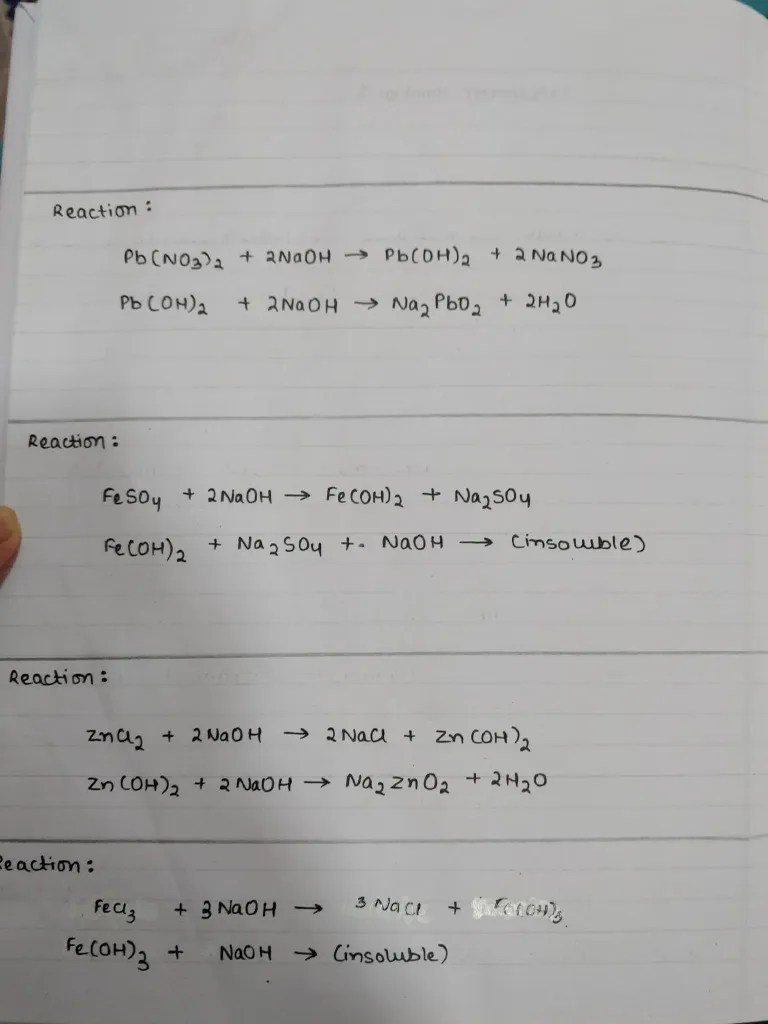 Reaction:
Pb(NO3)2 + 2NaOH → Pb(OH)2 + 2NaNO3
Pb(OH)2 + 2NaOH → Na2PbO2 + 2H2O
Reaction:
FeSO4 + 2NaOH → Fe(OH)2 + Na2SO4
Fe(OH)2 + Na2SO4 + NaOH → (insoluble)
Reaction:
ZnCl2 + 2NaOH → 2NaCl + Zn(OH)2
Zn(OH)2 + 2NaOH → Na2ZnO2 + 2H2O
Reaction:
FeCl3 + 3NaOH → 3NaCl + Fe(OH)3
Fe(OH)3 + NaOH → (insoluble)